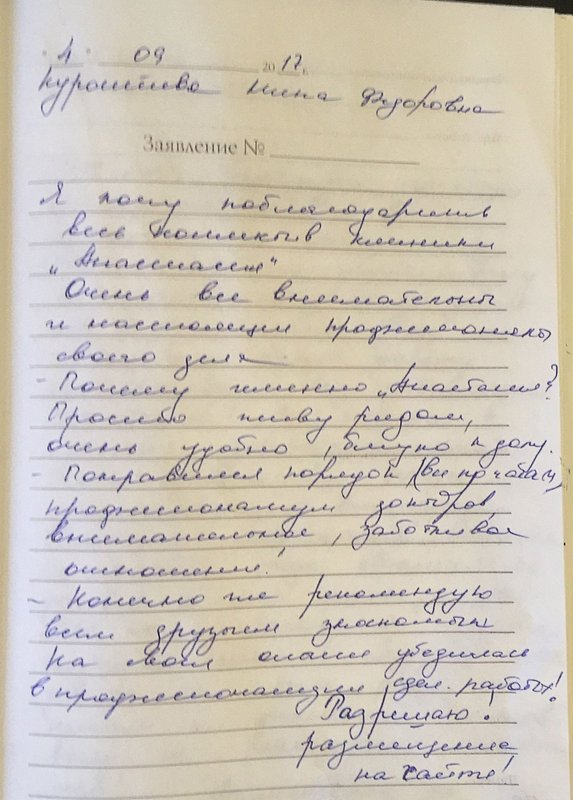 4 09 2017 г.
Нина Федоровна
Заявление №
Я хочу поблагодарить
весь коллектив клиники
„Анастасия“
Очень все внимательны
и настоящие профессионалы
своего дела
- Почему именно „Анастасия“?
Просто живу рядом,
очень удобно, близко к дому.
- Понравился порядок (все по часам),
профессионализм докторов,
внимательное, заботливое
отношение!
- Конечно же рекомендую
всем друзьям знакомым
На своем опыте убедилась
в профессионализме сдел. работы!
Разрешаю!
размещение
на сайте!